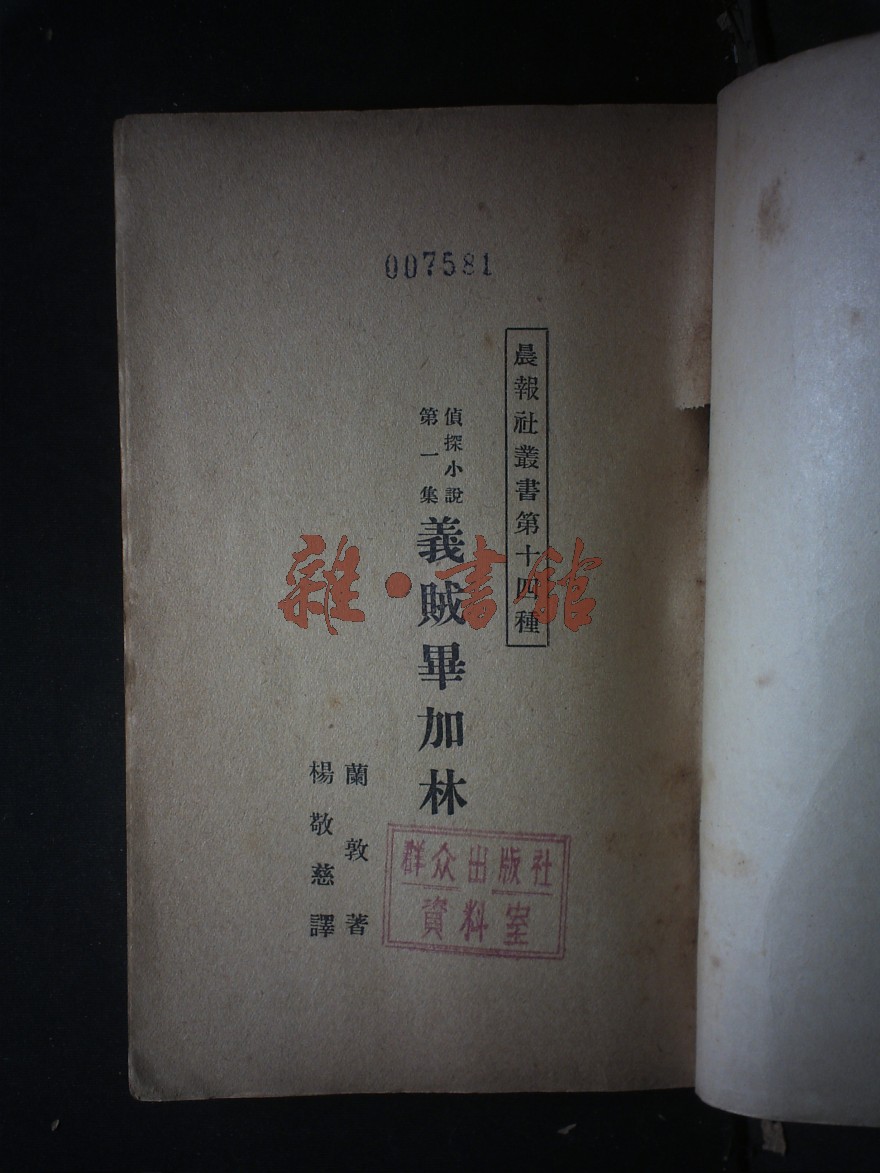 007581
晨報社叢書第十四種
偵探小說
第一集
義賊畢加林
蘭敦著
楊敬慈譯
群众出版社
資料室
雜·書館